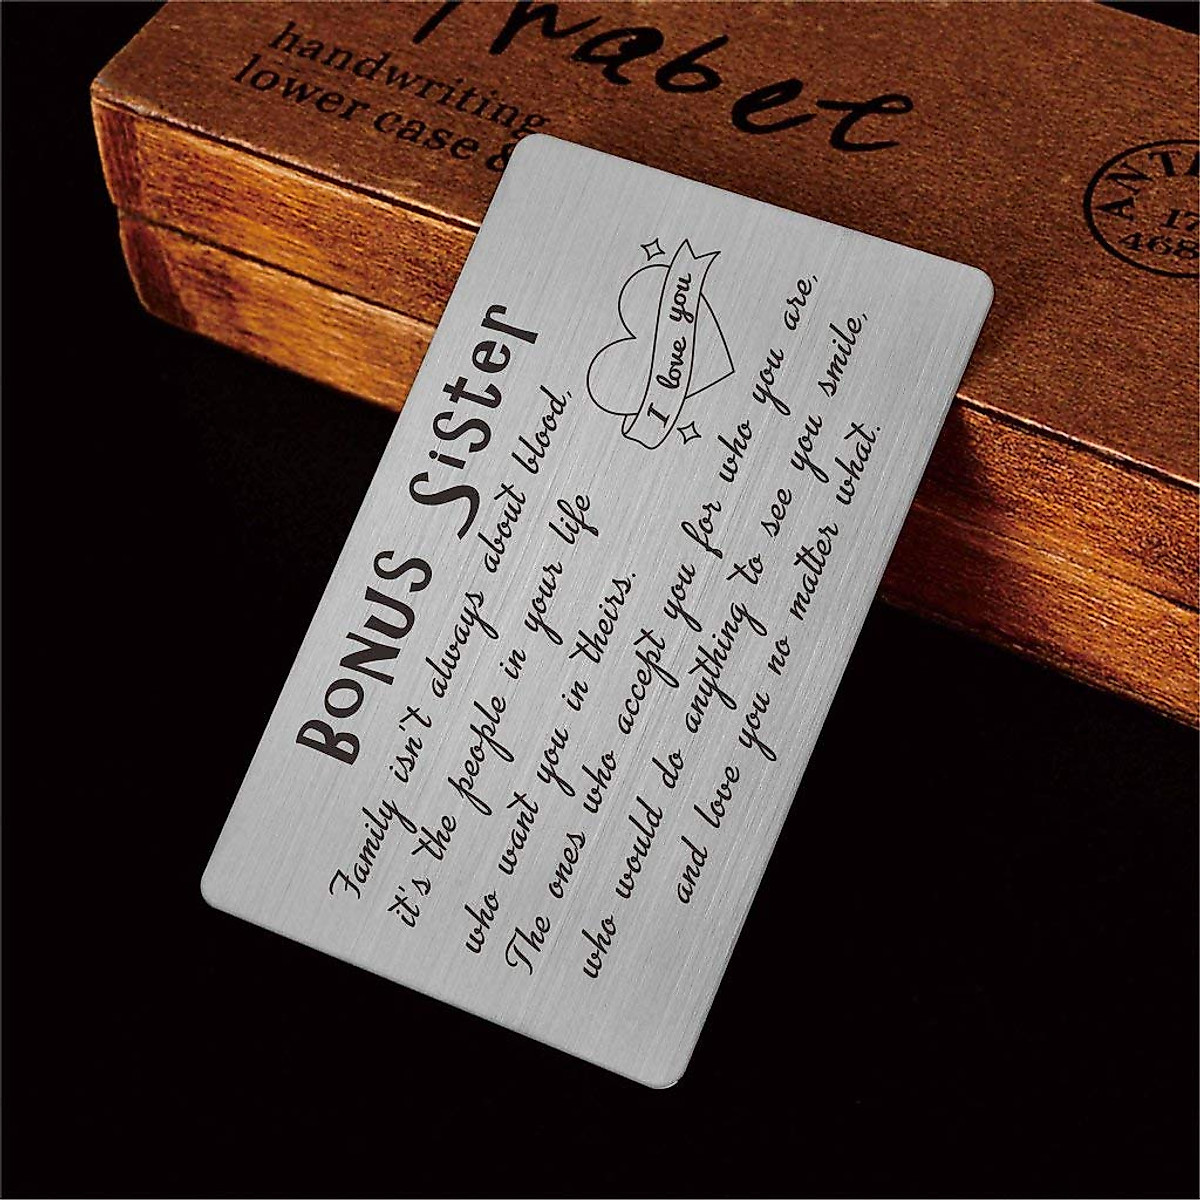 handwriting
lower case &
BONUS SiSter
Family isn't always about blood,
it's the people in your life
who want you in theirs.
The ones who accept you for who you are,
who would do anything to see you smile,
and love you no matter what.
I love you